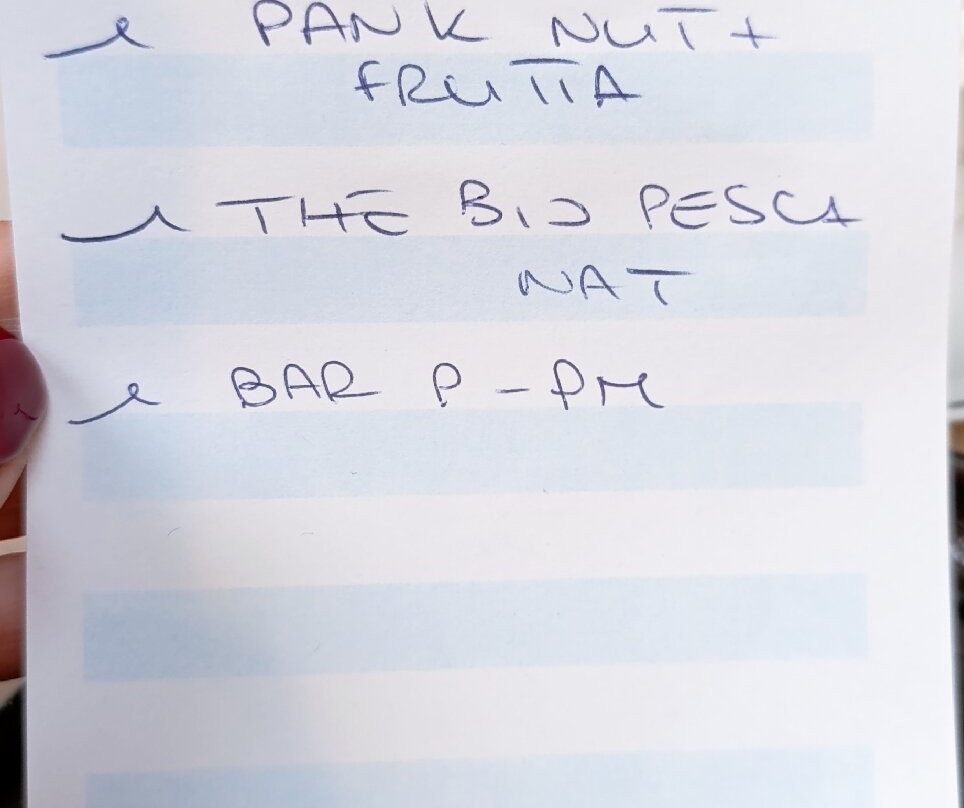 1 PANK NUT +
FRUTTA
1 THE BIO PESCA
NAT
1 BAR P - PM